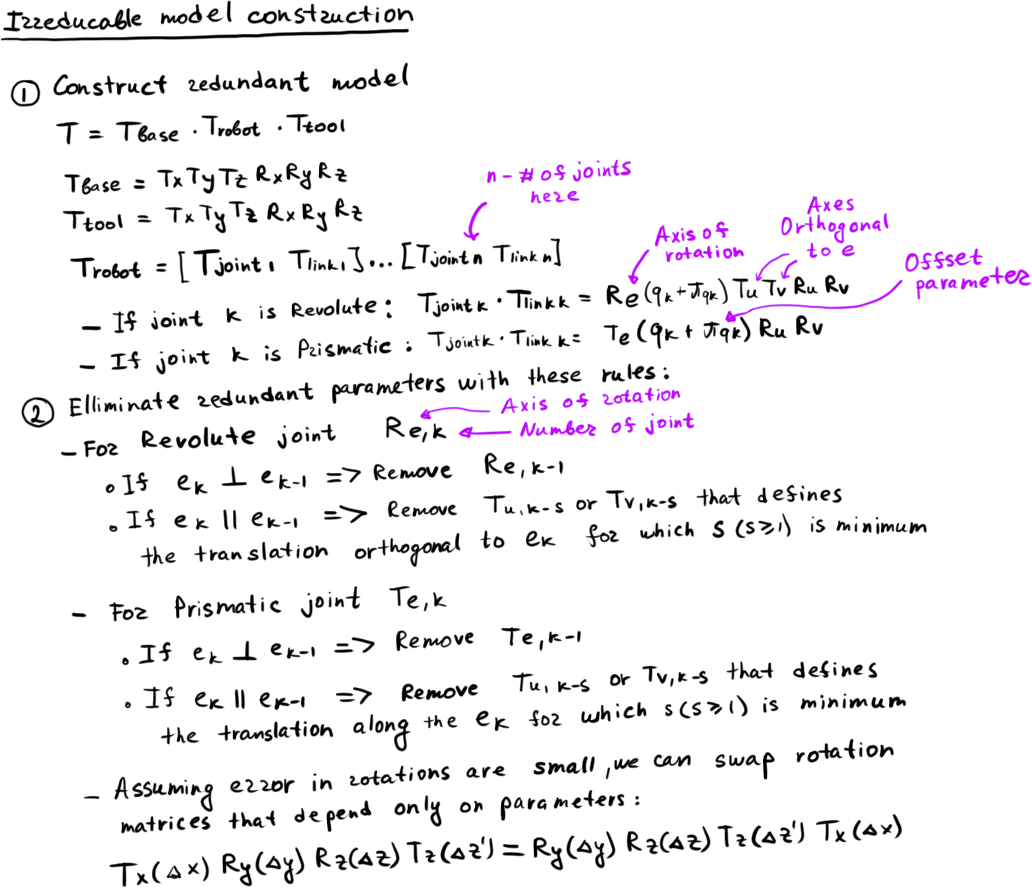 Irreducable model construction
① Construct redundant model
T = Tbase · Trobot · Ttool
Tbase = TxTyTz RxRyRz
Ttool = TxTyTz RxRyRz
n - # of joints
here
Trobot = [Tjoint1 Tlink1]...[Tjointn Tlinkn]
Axis of
rotation
Axes
Orthogonal
to e
Offset
parameter
- If joint k is Revolute: Tjointk · Tlinkk = Re(qk+πqk) TuTvRuRv
- If joint k is Prismatic: Tjointk · Tlinkk = Te(qk+πqk) RuRv
② Elliminate redundant parameters with these rules:
Axis of rotation
Number of joint
- For Revolute joint Re,k
• If ek ⊥ ek-1 => Remove Re,k-1
• If ek || ek-1 => Remove Tu,k-s or Tv,k-s that defines
the translation orthogonal to ek for which s (s⩾1) is minimum
- For Prismatic joint Te,k
• If ek ⊥ ek-1 => Remove Te,k-1
• If ek || ek-1 => Remove Tu,k-s or Tv,k-s that defines
the translation along the ek for which s(s⩾1) is minimum
- Assuming error in rotations are small, we can swap rotation
matrices that depend only on parameters:
Tx(Δx) Ry(Δy) Rz(Δz) Tz(Δz') = Ry(Δy) Rz(Δz) Tz(Δz') Tx(Δx)